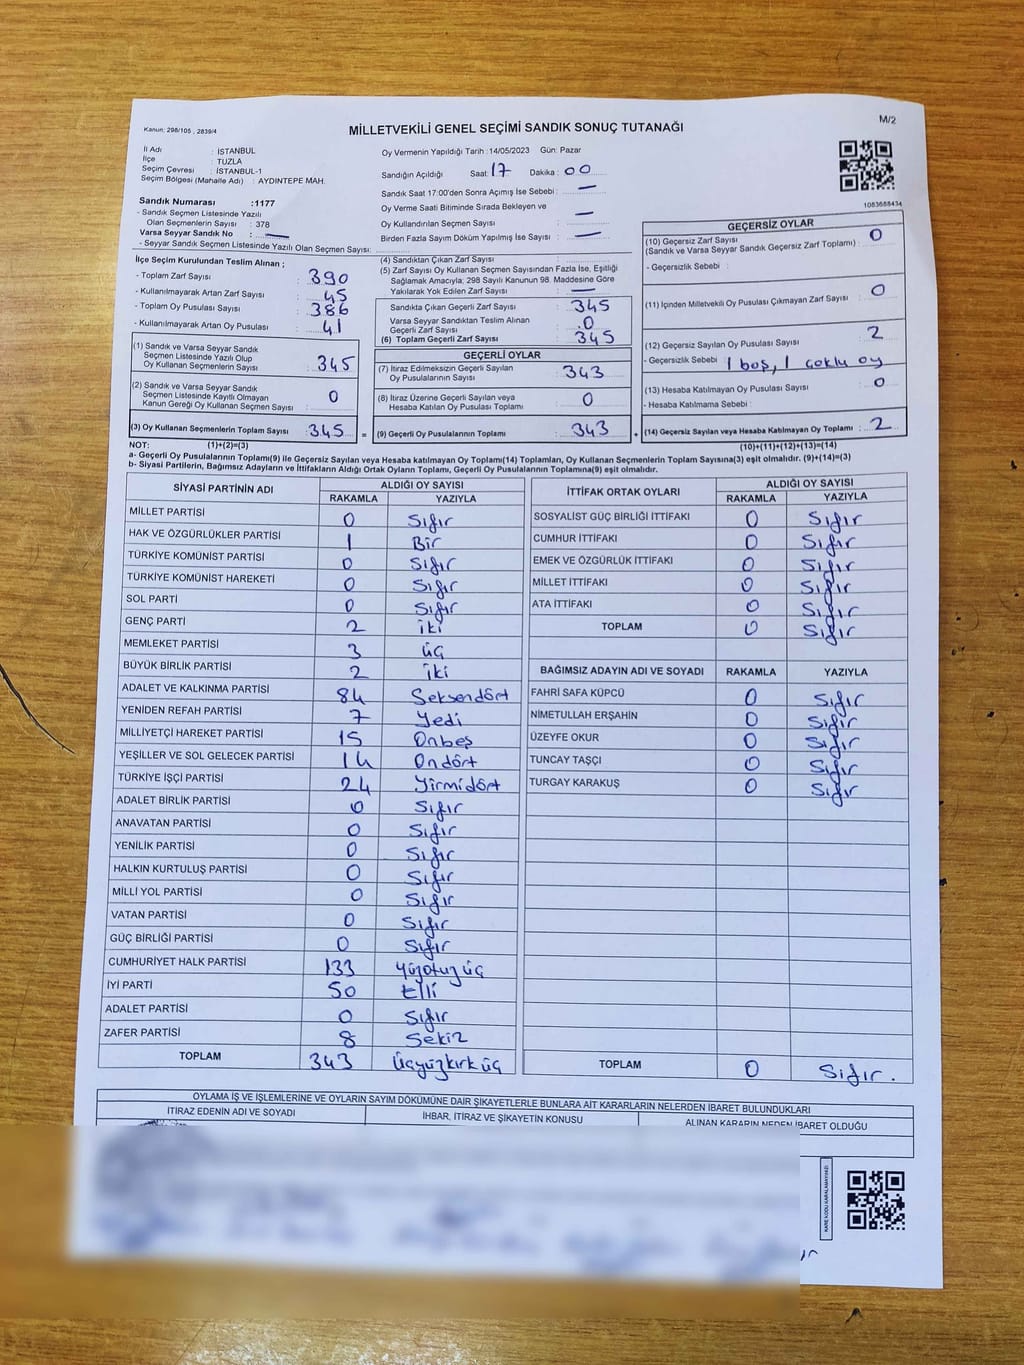 Kanun; 298/105 , 2839/4
MİLLETVEKİLİ GENEL SEÇİMİ SANDIK SONUÇ TUTANAĞI
M/2
İl Adı : İSTANBUL
İlçe : TUZLA
Seçim Çevresi : İSTANBUL-1
Seçim Bölgesi (Mahalle Adı) : AYDINTEPE MAH.
Sandık Numarası :1177
- Sandık Seçmen Listesinde Yazılı
Olan Seçmenlerin Sayısı : 378
Varsa Seyyar Sandık No : —
- Seyyar Sandık Seçmen Listesinde Yazılı Olan Seçmen Sayısı:
Oy Vermenin Yapıldığı Tarih :14/05/2023 Gün: Pazar
Sandığın Açıldığı Saat: 17 Dakika : 00
Sandık Saat 17:00'den Sonra Açımış İse Sebebi : —
Oy Verme Saati Bitiminde Sırada Bekleyen ve
Oy Kullandırılan Seçmen Sayısı : —
Birden Fazla Sayım Döküm Yapılmış İse Sayısı : —
1083688434
İlçe Seçim Kurulundan Teslim Alınan ;
- Toplam Zarf Sayısı : 390
- Kullanılmayarak Artan Zarf Sayısı : 45
- Toplam Oy Pusulası Sayısı : 386
- Kullanılmayarak Artan Oy Pusulası : 41
(1) Sandık ve Varsa Seyyar Sandık
Seçmen Listesinde Yazılı Olup
Oy Kullanan Seçmenlerin Sayısı : 345
(2) Sandık ve Varsa Seyyar Sandık
Seçmen Listesinde Kayıtlı Olmayan
Kanun Gereği Oy Kullanan Seçmen Sayısı : 0
(3) Oy Kullanan Seçmenlerin Toplam Sayısı : 345
(4) Sandıktan Çıkan Zarf Sayısı :
(5) Zarf Sayısı Oy Kullanan Seçmen Sayısından Fazla İse, Eşitliği
Sağlamak Amacıyla; 298 Sayılı Kanunun 98. Maddesine Göre
Yakılarak Yok Edilen Zarf Sayısı : —
Sandıkta Çıkan Geçerli Zarf Sayısı : 345
Varsa Seyyar Sandıktan Teslim Alınan
Geçerli Zarf Sayısı : 0
(6) Toplam Geçerli Zarf Sayısı : 345
GEÇERLİ OYLAR
(7) İtiraz Edilmeksizin Geçerli Sayılan
Oy Pusulalarının Sayısı : 343
(8) İtiraz Üzerine Geçerli Sayılan veya
Hesaba Katılan Oy Pusulası Toplamı : 0
= (9) Geçerli Oy Pusulalarının Toplamı : 343
GEÇERSİZ OYLAR
(10) Geçersiz Zarf Sayısı
(Sandık ve Varsa Seyyar Sandık Geçersiz Zarf Toplamı) : 0
- Geçersizlik Sebebi :
(11) İçinden Milletvekili Oy Pusulası Çıkmayan Zarf Sayısı : 0
(12) Geçersiz Sayılan Oy Pusulası Sayısı : 2
- Geçersizlik Sebebi : 1 boş, 1 çoklu oy
(13) Hesaba Katılmayan Oy Pusulası Sayısı : 0
- Hesaba Katılmama Sebebi :
+ (14) Geçersiz Sayılan veya Hesaba Katılmayan Oy Toplamı : 2
NOT: (1)+(2)=(3) (10)+(11)+(12)+(13)=(14)
a- Geçerli Oy Pusulalarının Toplamı(9) ile Geçersiz Sayılan veya Hesaba Katılmayan Oy Toplamı(14) Toplamları, Oy Kullanan Seçmenlerin Toplam Sayısına(3) eşit olmalıdır. (9)+(14)=(3)
b- Siyasi Partilerin, Bağımsız Adayların ve İttifakların Aldığı Ortak Oyların Toplamı, Geçerli Oy Pusulalarının Toplamına(9) eşit olmalıdır.
SİYASİ PARTİNİN ADI ALDIĞI OY SAYISI
RAKAMLA YAZIYLA
MİLLET PARTİSİ 0 Sıfır
HAK VE ÖZGÜRLÜKLER PARTİSİ 1 Bir
TÜRKİYE KOMÜNİST PARTİSİ 0 Sıfır
TÜRKİYE KOMÜNİST HAREKETİ 0 Sıfır
SOL PARTİ 0 Sıfır
GENÇ PARTİ 2 iki
MEMLEKET PARTİSİ 3 üç
BÜYÜK BİRLİK PARTİSİ 2 iki
ADALET VE KALKINMA PARTİSİ 84 Seksendört
YENİDEN REFAH PARTİSİ 7 Yedi
MİLLİYETÇİ HAREKET PARTİSİ 15 Onbeş
YEŞİLLER VE SOL GELECEK PARTİSİ 14 Ondört
TÜRKİYE İŞÇİ PARTİSİ 24 Yirmidört
ADALET BİRLİK PARTİSİ 0 Sıfır
ANAVATAN PARTİSİ 0 Sıfır
YENİLİK PARTİSİ 0 Sıfır
HALKIN KURTULUŞ PARTİSİ 0 Sıfır
MİLLİ YOL PARTİSİ 0 Sıfır
VATAN PARTİSİ 0 Sıfır
GÜÇ BİRLİĞİ PARTİSİ 0 Sıfır
CUMHURİYET HALK PARTİSİ 133 Yüzotuzüç
İYİ PARTİ 50 Elli
ADALET PARTİSİ 0 Sıfır
ZAFER PARTİSİ 8 Sekiz
TOPLAM 343 Üçyüzkırküç
İTTİFAK ORTAK OYLARI ALDIĞI OY SAYISI
RAKAMLA YAZIYLA
SOSYALİST GÜÇ BİRLİĞİ İTTİFAKI 0 Sıfır
CUMHUR İTTİFAKI 0 Sıfır
EMEK VE ÖZGÜRLÜK İTTİFAKI 0 Sıfır
MİLLET İTTİFAKI 0 Sıfır
ATA İTTİFAKI 0 Sıfır
TOPLAM 0 Sıfır
BAĞIMSIZ ADAYIN ADI VE SOYADI RAKAMLA YAZIYLA
FAHRİ SAFA KÜPCÜ 0 Sıfır
NİMETULLAH ERŞAHİN 0 Sıfır
ÜZEYFE OKUR 0 Sıfır
TUNCAY TAŞÇI 0 Sıfır
TURGAY KARAKUŞ 0 Sıfır
TOPLAM 0 Sıfır.
OYLAMA İŞ VE İŞLEMLERİNE VE OYLARIN SAYIM DÖKÜMÜNE DAİR ŞİKAYETLERLE BUNLARA AİT KARARLARIN NELERDEN İBARET BULUNDUKLARI
İTİRAZ EDENİN ADI VE SOYADI İHBAR, İTİRAZ VE ŞİKAYETİN KONUSU ALINAN KARARIN NEDEN İBARET OLDUĞU